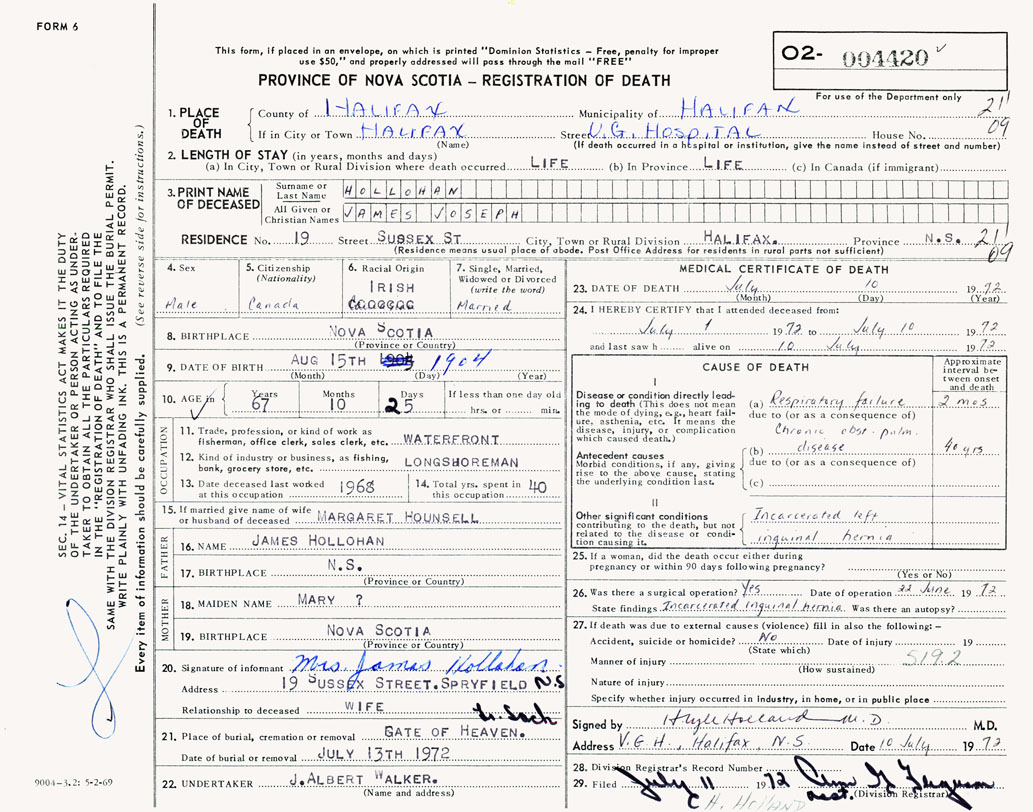 FORM 6
This form, if placed in an envelope, on which is printed "Dominion Statistics – Free, penalty for improper
use $50," and properly addressed will pass through the mail "FREE"
O2- 004420 ✓
PROVINCE OF NOVA SCOTIA – REGISTRATION OF DEATH
For use of the Department only
21
09
1. PLACE OF DEATH
County of HALIFAX Municipality of HALIFAX
If in City or Town HALIFAX Street V.G. HOSPITAL House No.
(Name) (If death occurred in a hospital or institution, give the name instead of street and number)
2. LENGTH OF STAY (in years, months and days)
(a) In City, Town or Rural Division where death occurred LIFE (b) In Province LIFE (c) In Canada (if immigrant)
3. PRINT NAME OF DECEASED
Surname or Last Name HOLLOHAN
All Given or Christian Names JAMES JOSEPH
RESIDENCE No. 19 Street SUSSEX ST City, Town or Rural Division HALIFAX. Province N.S. 21
09
(Residence means usual place of abode. Post Office Address for residents in rural parts not sufficient)
4. Sex
Male
5. Citizenship
(Nationality)
Canada
6. Racial Origin
IRISH
7. Single, Married,
Widowed or Divorced
(write the word)
Married
8. BIRTHPLACE NOVA SCOTIA
(Province or Country)
9. DATE OF BIRTH AUG 15TH 1904
(Month) (Day) (Year)
10. AGE in Years 67 Months 10 Days 25 If less than one day old
hrs. or min.
OCCUPATION
11. Trade, profession, or kind of work as
fisherman, office clerk, sales clerk, etc. WATERFRONT
12. Kind of industry or business, as fishing,
bank, grocery store, etc. LONGSHOREMAN
13. Date deceased last worked
at this occupation 1968
14. Total yrs. spent in
this occupation 40
15. If married give name of wife
or husband of deceased MARGARET HOUNSELL
FATHER
16. NAME JAMES HOLLOHAN
17. BIRTHPLACE N.S.
(Province or Country)
MOTHER
18. MAIDEN NAME MARY ?
19. BIRTHPLACE NOVA SCOTIA
(Province or Country)
20. Signature of informant Mrs. James Hollohan.
Address 19 SUSSEX STREET. SPRYFIELD N.S
Relationship to deceased WIFE
21. Place of burial, cremation or removal GATE OF HEAVEN.
Date of burial or removal JULY 13TH 1972
22. UNDERTAKER J. ALBERT WALKER.
(Name and address)
MEDICAL CERTIFICATE OF DEATH
23. DATE OF DEATH July 10 1972
(Month) (Day) (Year)
24. I HEREBY CERTIFY that I attended deceased from:
July 1 1972 to July 10 1972
and last saw h alive on 10 July 1972
CAUSE OF DEATH
Approximate
interval be-
tween onset
and death
I
Disease or condition directly lead-
ing to death (This does not mean
the mode of dying, e.g., heart fail-
ure, asthenia, etc. It means the
disease, injury, or complication
which caused death.)
(a) Respiratory failure 2 mos
due to (or as a consequence of)
Chronic obst. pulm.
Antecedent causes
Morbid conditions, if any, giving
rise to the above cause, stating
the underlying condition last.
(b) disease 40 yrs
due to (or as a consequence of)
(c)
II
Other significant conditions
contributing to the death, but not
related to the disease or condi-
tion causing it.
Incarcerated left
inguinal hernia
25. If a woman, did the death occur either during
pregnancy or within 90 days following pregnancy?
(Yes or No)
26. Was there a surgical operation? Yes Date of operation 22 June 1972
State findings Incarcerated inguinal hernia Was there an autopsy?
27. If death was due to external causes (violence) fill in also the following:–
Accident, suicide or homicide? No Date of injury 19
(State which)
Manner of injury 519.2
(How sustained)
Nature of injury
Specify whether injury occurred in industry, in home, or in public place
Signed by Holland M.D. M.D.
Address V.G.H., Halifax, N.S. Date 10 July 1972
28. Division Registrar's Record Number
29. Filed July 11 1972 Ferguson
(Division Registrar)
C.H. HOLLAND
SEC. 14 – VITAL STATISTICS ACT MAKES IT THE DUTY
OF THE UNDERTAKER OR PERSON ACTING AS UNDER-
TAKER TO OBTAIN ALL THE PARTICULARS REQUIRED
IN THE "REGISTRATION OF DEATH" AND TO FILE THE
SAME WITH THE DIVISION REGISTRAR WHO SHALL ISSUE THE BURIAL PERMIT.
WRITE PLAINLY WITH UNFADING INK. THIS IS A PERMANENT RECORD.
Every item of information should be carefully supplied. (See reverse side for instructions.)
9004-3.2: 5-2-69